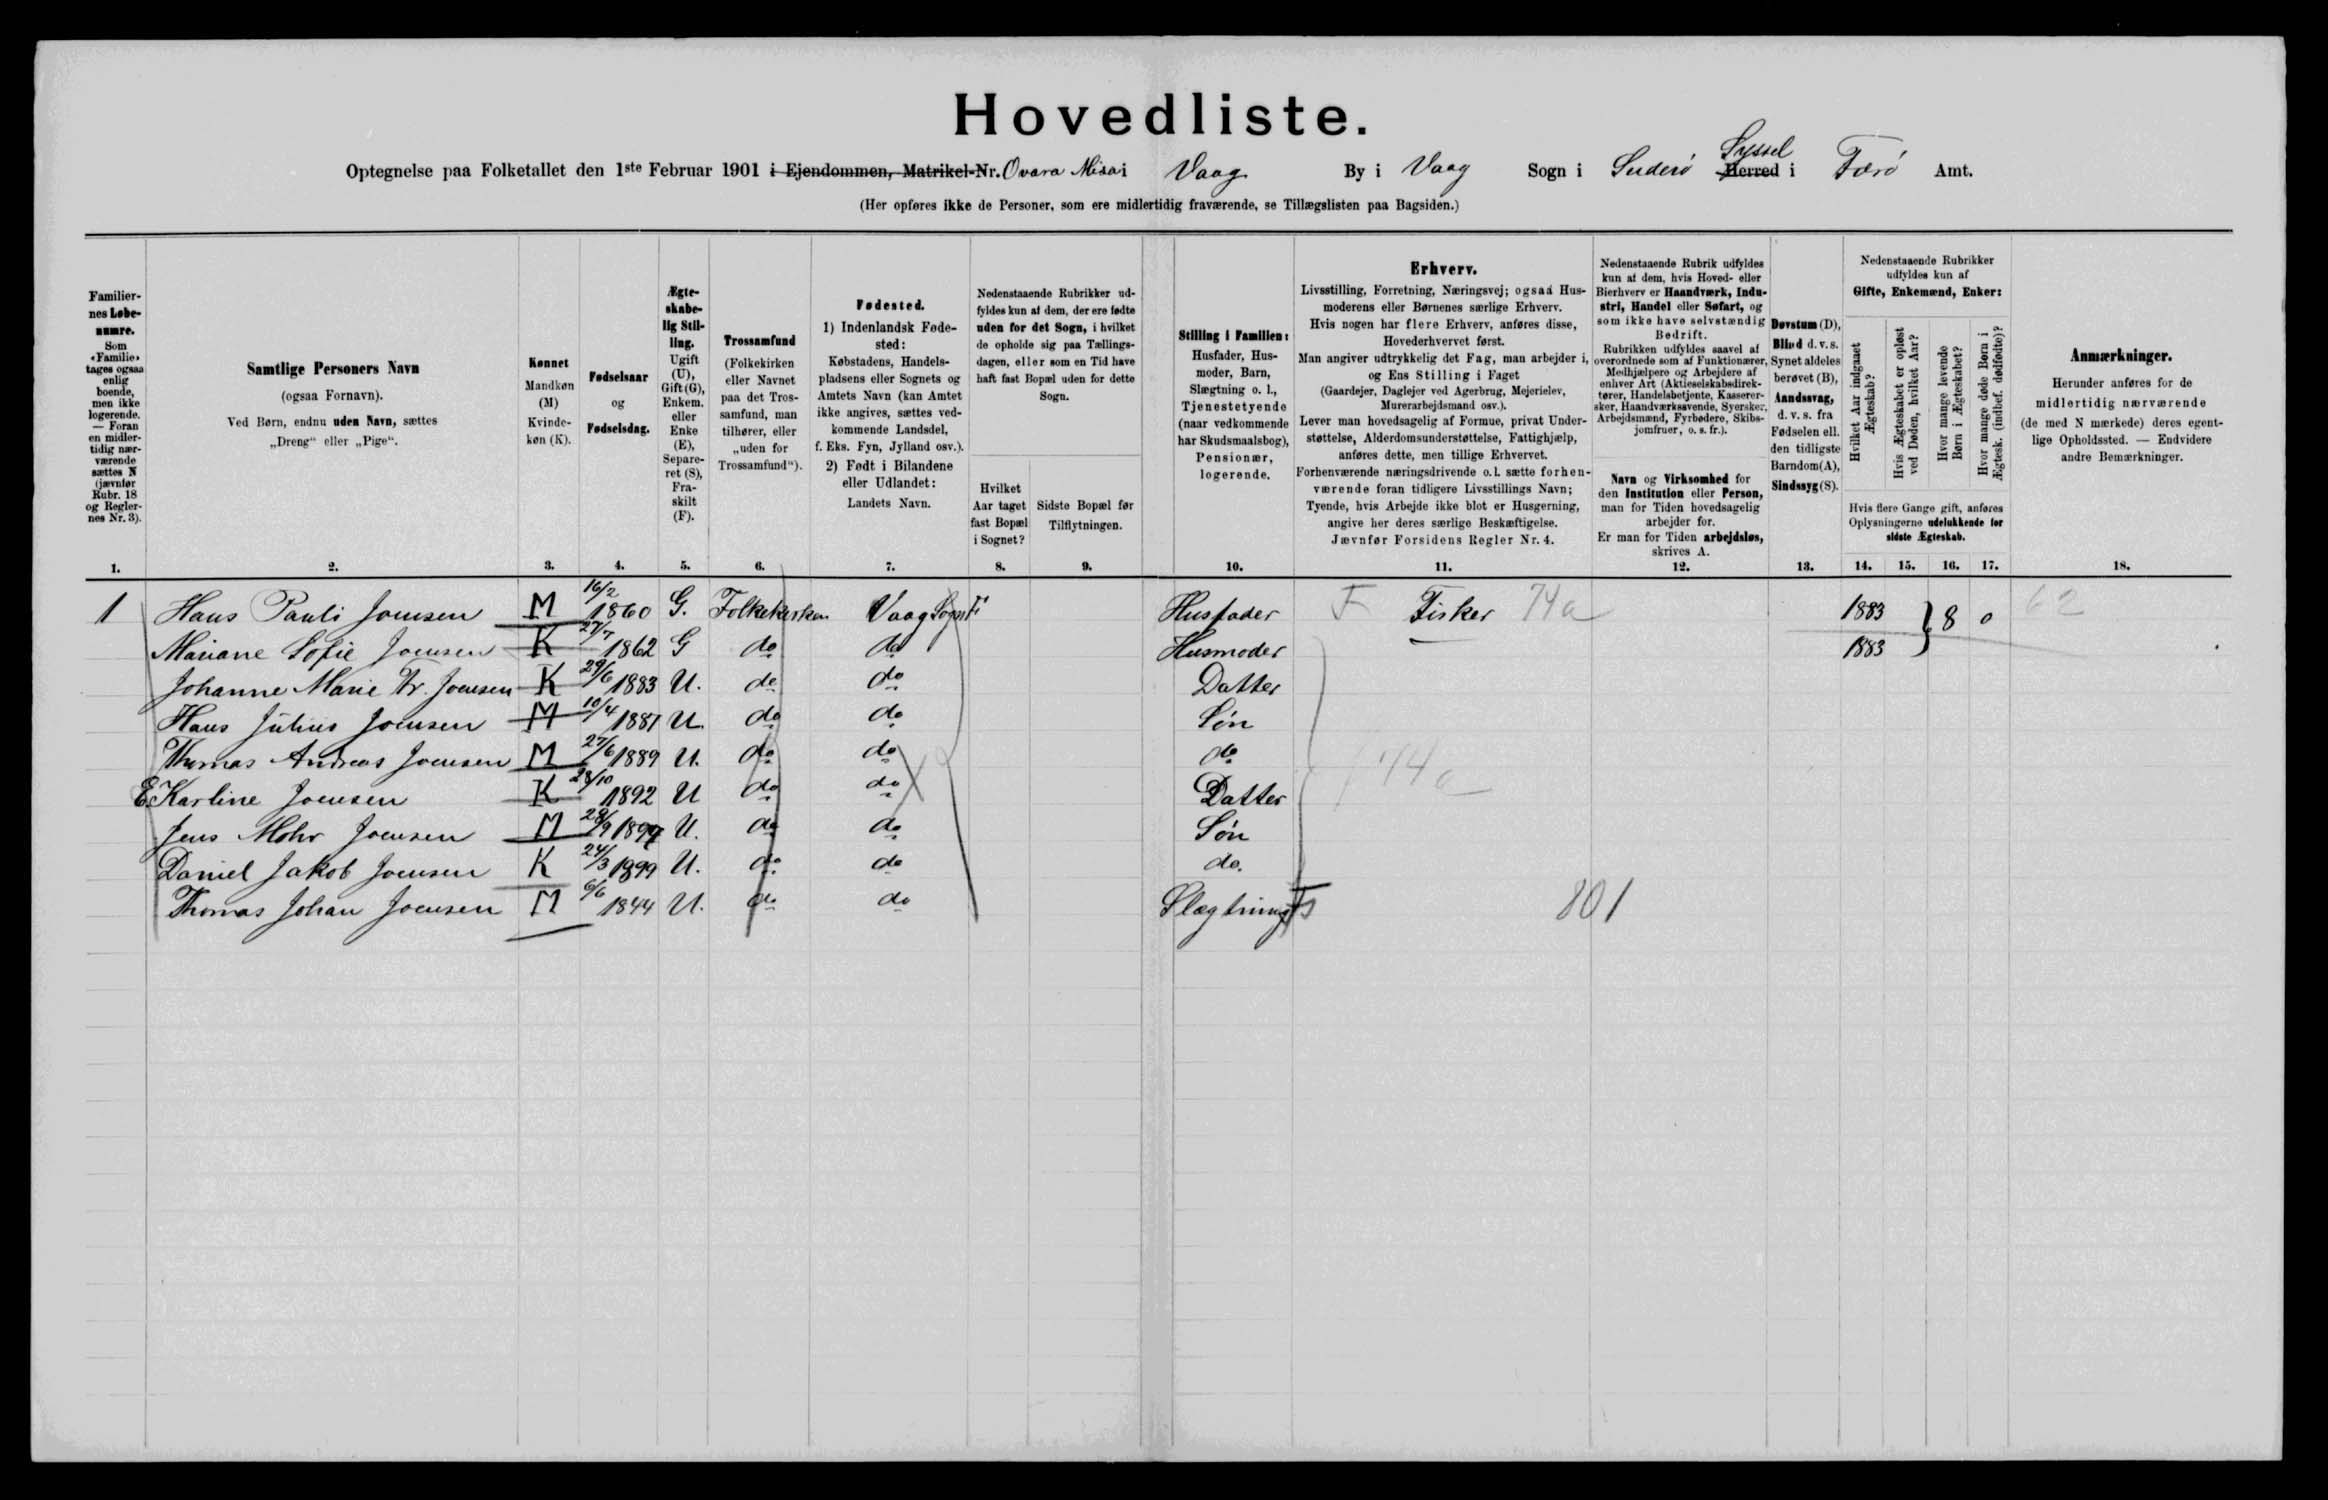 Hovedliste.
Optegnelse paa Folketallet den 1ste Februar 1901 i Ejendommen, Matrikel-Nr. Ovara Misa i Vaag By i Vaag Sogn i Suderö Herred Syssel i Færö Amt.
(Her opføres ikke de Personer, som ere midlertidig fraværende, se Tillægslisten paa Bagsiden.)
Familiernes Løbenumre.
Som «Familie» tages ogsaa enlig boende, men ikke logerende. — Foran en midlertidig nærværende sættes N (jævnfør Rubr. 18 og Reglernes Nr. 3).
Samtlige Personers Navn
(ogsaa Fornavn).
Ved Børn, endnu uden Navn, sættes
„Dreng“ eller „Pige“.
Kønnet
Mandkøn (M)
Kvindekøn (K).
Fødselsaar
og
Fødselsdag.
Ægteskabelig Stilling.
Ugift (U), Gift (G), Enkem. eller Enke (E), Separeret (S), Fraskilt (F).
Trossamfund
(Folkekirken eller Navnet paa det Trossamfund, man tilhører, eller „uden for Trossamfund“).
Fødested.
1) Indenlandsk Fødested:
Købstadens, Handelspladsens eller Sognets og Amtets Navn (kan Amtet ikke angives, sættes vedkommende Landsdel, f. Eks. Fyn, Jylland osv.).
2) Født i Bilandene eller Udlandet:
Landets Navn.
Nedenstaaende Rubrikker udfyldes kun af dem, der ere fødte uden for det Sogn, i hvilket de opholde sig paa Tællingsdagen, eller som en Tid have haft fast Bopæl uden for dette Sogn.
Hvilket Aar taget fast Bopæl i Sognet?
Sidste Bopæl før Tilflytningen.
Stilling i Familien:
Husfader, Husmoder, Barn, Slægtning o. l., Tjenestetyende (naar vedkommende har Skudsmaalsbog), Pensionær, logerende.
Erhverv.
Livsstilling, Forretning, Næringsvej; ogsaa Husmoderens eller Børnenes særlige Erhverv.
Hvis nogen har flere Erhverv, anføres disse, Hovederhvervet først.
Man angiver udtrykkelig det Fag, man arbejder i, og Ens Stilling i Faget
(Gaardejer, Daglejer ved Agerbrug, Mejerielev, Murerarbejdsmand osv.).
Lever man hovedsagelig af Formue, privat Understøttelse, Alderdomsunderstøttelse, Fattighjælp, anføres dette, men tillige Erhvervet.
Forhenværende næringsdrivende o. l. sætte forhenværende foran tidligere Livsstillings Navn;
Tyende, hvis Arbejde ikke blot er Husgerning, angive her deres særlige Beskæftigelse.
Jævnfør Forsidens Regler Nr. 4.
Nedenstaaende Rubrik udfyldes kun af dem, hvis Hoved- eller Bierhverv er Haandværk, Industri, Handel eller Søfart, og som ikke have selvstændig Bedrift.
Rubrikken udfyldes saavel af overordnede som af Funktionærer, Medhjælpere og Arbejdere af enhver Art (Aktieselskabsdirektører, Handelsbetjente, Kasserersker, Haandværkssvende, Syersker, Arbejdsmænd, Fyrbødere, Skibsjomfruer, o. s. fr.).
Navn og Virksomhed for den Institution eller Person, man for Tiden hovedsagelig arbejder for.
Er man for Tiden arbejdsløs, skrives A.
Døvstum (D), Blind d. v. s. Synet aldeles berøvet (B), Aandssvag, d. v. s. fra Fødselen ell. den tidligste Barndom (A), Sindssyg (S).
Nedenstaaende Rubrikker udfyldes kun af
Gifte, Enkemænd, Enker:
Hvilket Aar indgaaet Ægteskab?
Hvis Ægteskabet er opløst ved Døden, hvilket Aar?
Hvor mange levende Børn i Ægteskabet?
Hvor mange døde Børn i Ægtesk. (indbef. dødfødte)?
Hvis flere Gange gift, anføres Oplysningerne udelukkende for sidste Ægteskab.
Anmærkninger.
Herunder anføres for de midlertidig nærværende (de med N mærkede) deres egentlige Opholdssted. — Endvidere andre Bemærkninger.
1. 2. 3. 4. 5. 6. 7. 8. 9. 10. 11. 12. 13. 14. 15. 16. 17. 18.
1 Hans Pauli Joensen M 16/2 1860 G. Folkekirken Vaag Sogn Fi Husfader F Fisker 74a 1883 8 0 62
Mariane Sofie Joensen K 27/7 1862 G do do Husmoder 1883
Johanne Marie Fr. Joensen K 29/6 1883 U. do do Datter
Hans Július Joensen M 10/4 1887 U. do do Sön
Thomas Andreas Joensen M 27/6 1889 U. do do do 74a
E Karline Joensen K 28/10 1892 U do do Datter
Jens Mohr Joensen M 28/9 1897 U. do do Sön
Daniel Jakob Joensen K 24/3 1899 U. do do do.
Thomas Johan Joensen M 6/6 1844 U. do do Slægtning 801